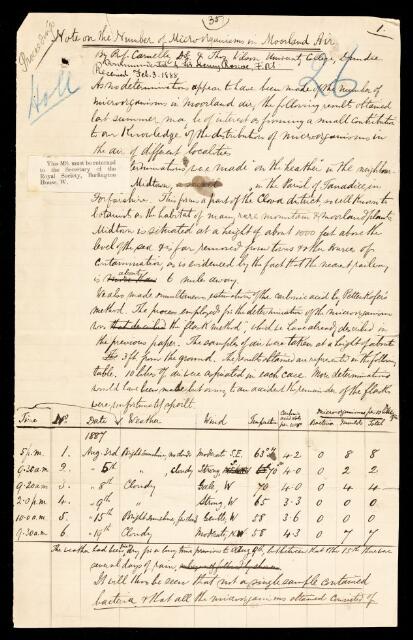 35
1.
Proceedings
Note on the Number of Microorganisms in Moorland Air
By Prof. Carnelley, D.Sc. & Thos. Wilson, University College, Dundee.
Communicated by Sir Henry Roscoe, F.R.S.
Received Feb. 3. 1888.
As no determinations appear to have been made of the number of
microorganisms in moorland air, the following results obtained
last summer may be of interest as forming a small contribution
to our knowledge of the distribution of microorganisms in
the air of different localities.
This MS. must be returned
to the Secretary of the
Royal Society, Burlington
House, W.
determinations were made on the heather in the neighbour-
Midtown, in the Parish of Tannadice, in
Forfarshire. This forms a part of the Clova district, so well known to
botanists as the habitat of many rare mountain & moorland plants.
Midtown is situated at a height of about 1000 feet above the
level of the sea & is far removed from towns & other sources of
contamination, as is evidenced by the fact that the nearest railway
is about 6 miles away.
We also made simultaneous estimations of the carbonic acid by Pettenkofer's
method. The process employed for the determination of the microorganisms
was that described the flask method, which we have already described in
the previous paper. The samples of air were taken at a height of about
3 ft from the ground. The results obtained are reported in the following
table. 10 litres of air were aspirated in each case. More determinations
would have been made but owing to an accident the remainder of the flasks
were unfortunately spoilt.
Time No. Date Weather Wind Temperature Carbonic acid microorganisms per 10 litres
Bacteria Moulds Total
1887
5 p.m. 1. Aug. 3rd Bright sunshine, moderate S.E. 63° 4.2 0 8 8
9.20 a.m. 2. " 5th " , cloudy Strong 70 4.0 0 2 2
9.20 a.m. 3. " 8th Cloudy Gale, W 70 4.0 0 4 4
2.0 p.m. 4. " 9th " Strong, W 65 3.3 0 0 0
10.0 a.m. 5. " 15th Bright sunshine, Gentle, W 58 3.6 0 0 0
9.30 a.m. 6. " 19th Cloudy moderate, N.W 58 4.3 0 7 7
The weather had been dry for a long time previous to Aug 9th, but between that & the 15th there were
several days of rain,
It will thus be seen that not a single sample contained
bacteria & that all the microorganisms obtained consisted of